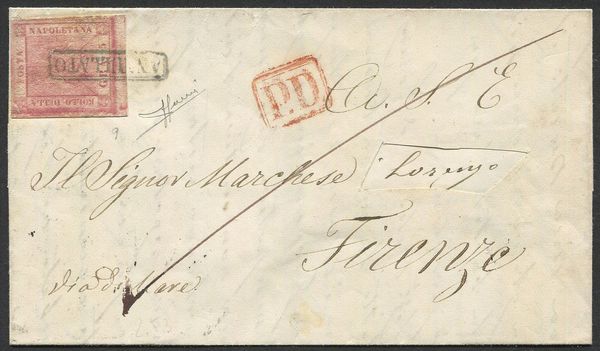 POSTA NAPOLETANA
BOLLO DELLA
ANNULLATO
P.D
A. S. E
Il Signor Marchese Lorenzo
Firenze
Via di Mare